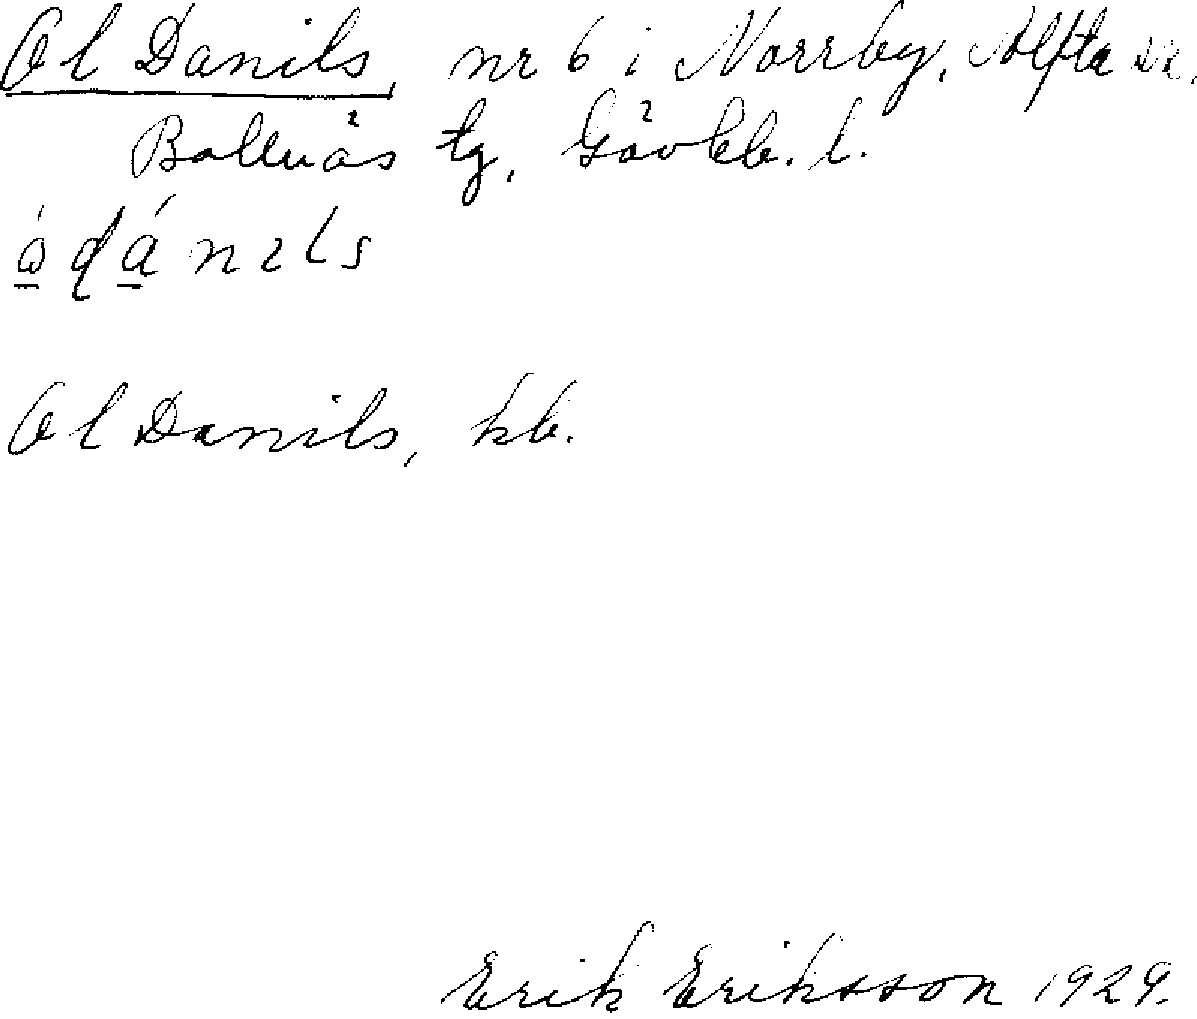 Ol Danils, nr 6 i Norrby, Alfta sn,
Bollnäs tg, Gävleb. l.
Ol Danils, kb.
Erik Eriksson 1929.